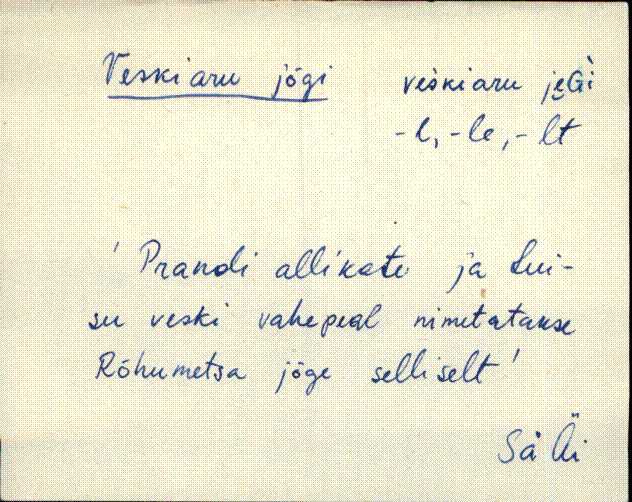 Veskiaru jõgi veskiaru je̮Gì
-l, -le, -lt
' Prandi allikate ja Lui-
su veski vahepeal nimetatakse
Rõhumetsa jõge selliselt '
Sä Äi